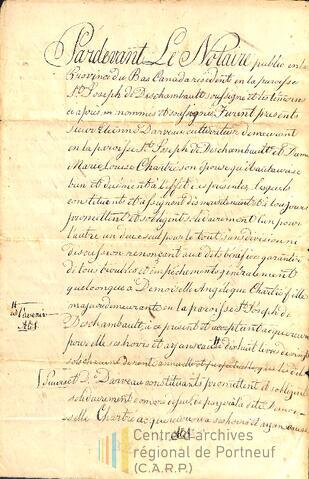 Pardevant Le Notaire public en la
Province du Bas Canada résident en la paroisse
St. Joseph de Deschambault soussigné et les témoins
ci après nommés et soussignés Furent présents
Sieur Etienne Darveau cultivateur demeurant
en la paroisse St. Joseph de Deschambault et Dame
Marie Louise Chartré son épouse qu'il autorise
bien et duement à l'effet des présentes Lesquels
constituent et assignent dès maintenant à toujours
promettent et s'obligent solidairement l'un pour
l'autre un deux seul pour le tout sans division ni
discussion renonçant aux dits bénéfices garantir
de tous troubles et empêchements généralement
quelconques Demoiselle Angelique Chartré fille
majeure demeurante en la paroisse St. Joseph de
Deschambault à ce présent et acceptant acquereure
pour elle ses hoirs et ayans cause
et à l'avenir
Darveau constituants promettent et s'obligent
solidairement payer à la dite Demoi-
selle Chartré acquereure ses hoirs et ayans cause
Centre d'archives
régional de Portneuf
(C.A.R.P.)